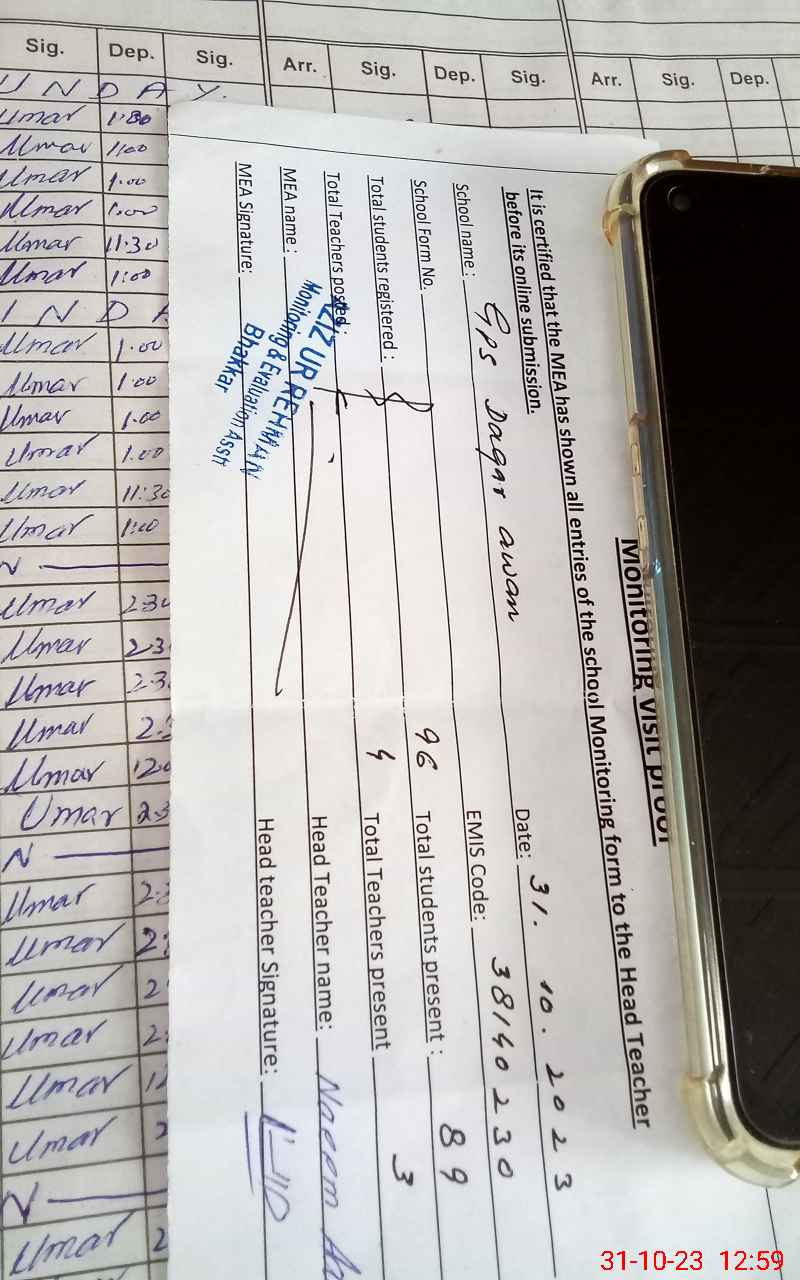 Sig. Dep. Sig. Arr. Sig. Dep. Sig. Arr. Sig. Dep.
U N D A Y.
Umar 1:30
Umar 1:00
Umar 1.00
Umar 1.00
Umar 11:30
Umar 1:00
N D A
Umar 1.00
Umar 1:00
Umar 1.00
Umar 1.00
Umar 11:30
Umar 1:00
N
Umar 2:30
Umar
Umar
Umar
Umar
Umar
N
Umar
Umar
Umar
Umar
Umar
Umar
N
Umar
Monitoring visit proof
It is certified that the MEA has shown all entries of the school Monitoring form to the Head Teacher
before its online submission.
Date: 31. 10. 2023
School name: GPS Dagar awan
EMIS Code: 38140230
School Form No. 8
Total students registered: 96 Total students present: 89
Total Teachers posted: 4 Total Teachers present 3
MEA name: Head Teacher name: Naeem
MEA Signature: Head teacher Signature:
AZIZ UR REHMAN
Monitoring & Evaluation Asstt
Bhakkar
31-10-23 12:59